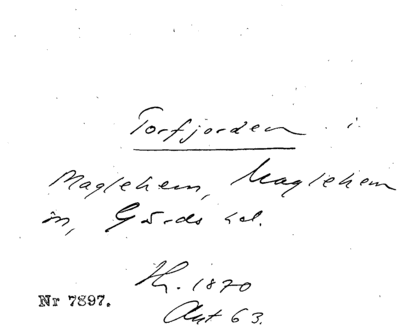 Torfjorden i
Maglehem, Maglehem
sn, Gärds hd.
1870
Nr 7897.
Ant 63.